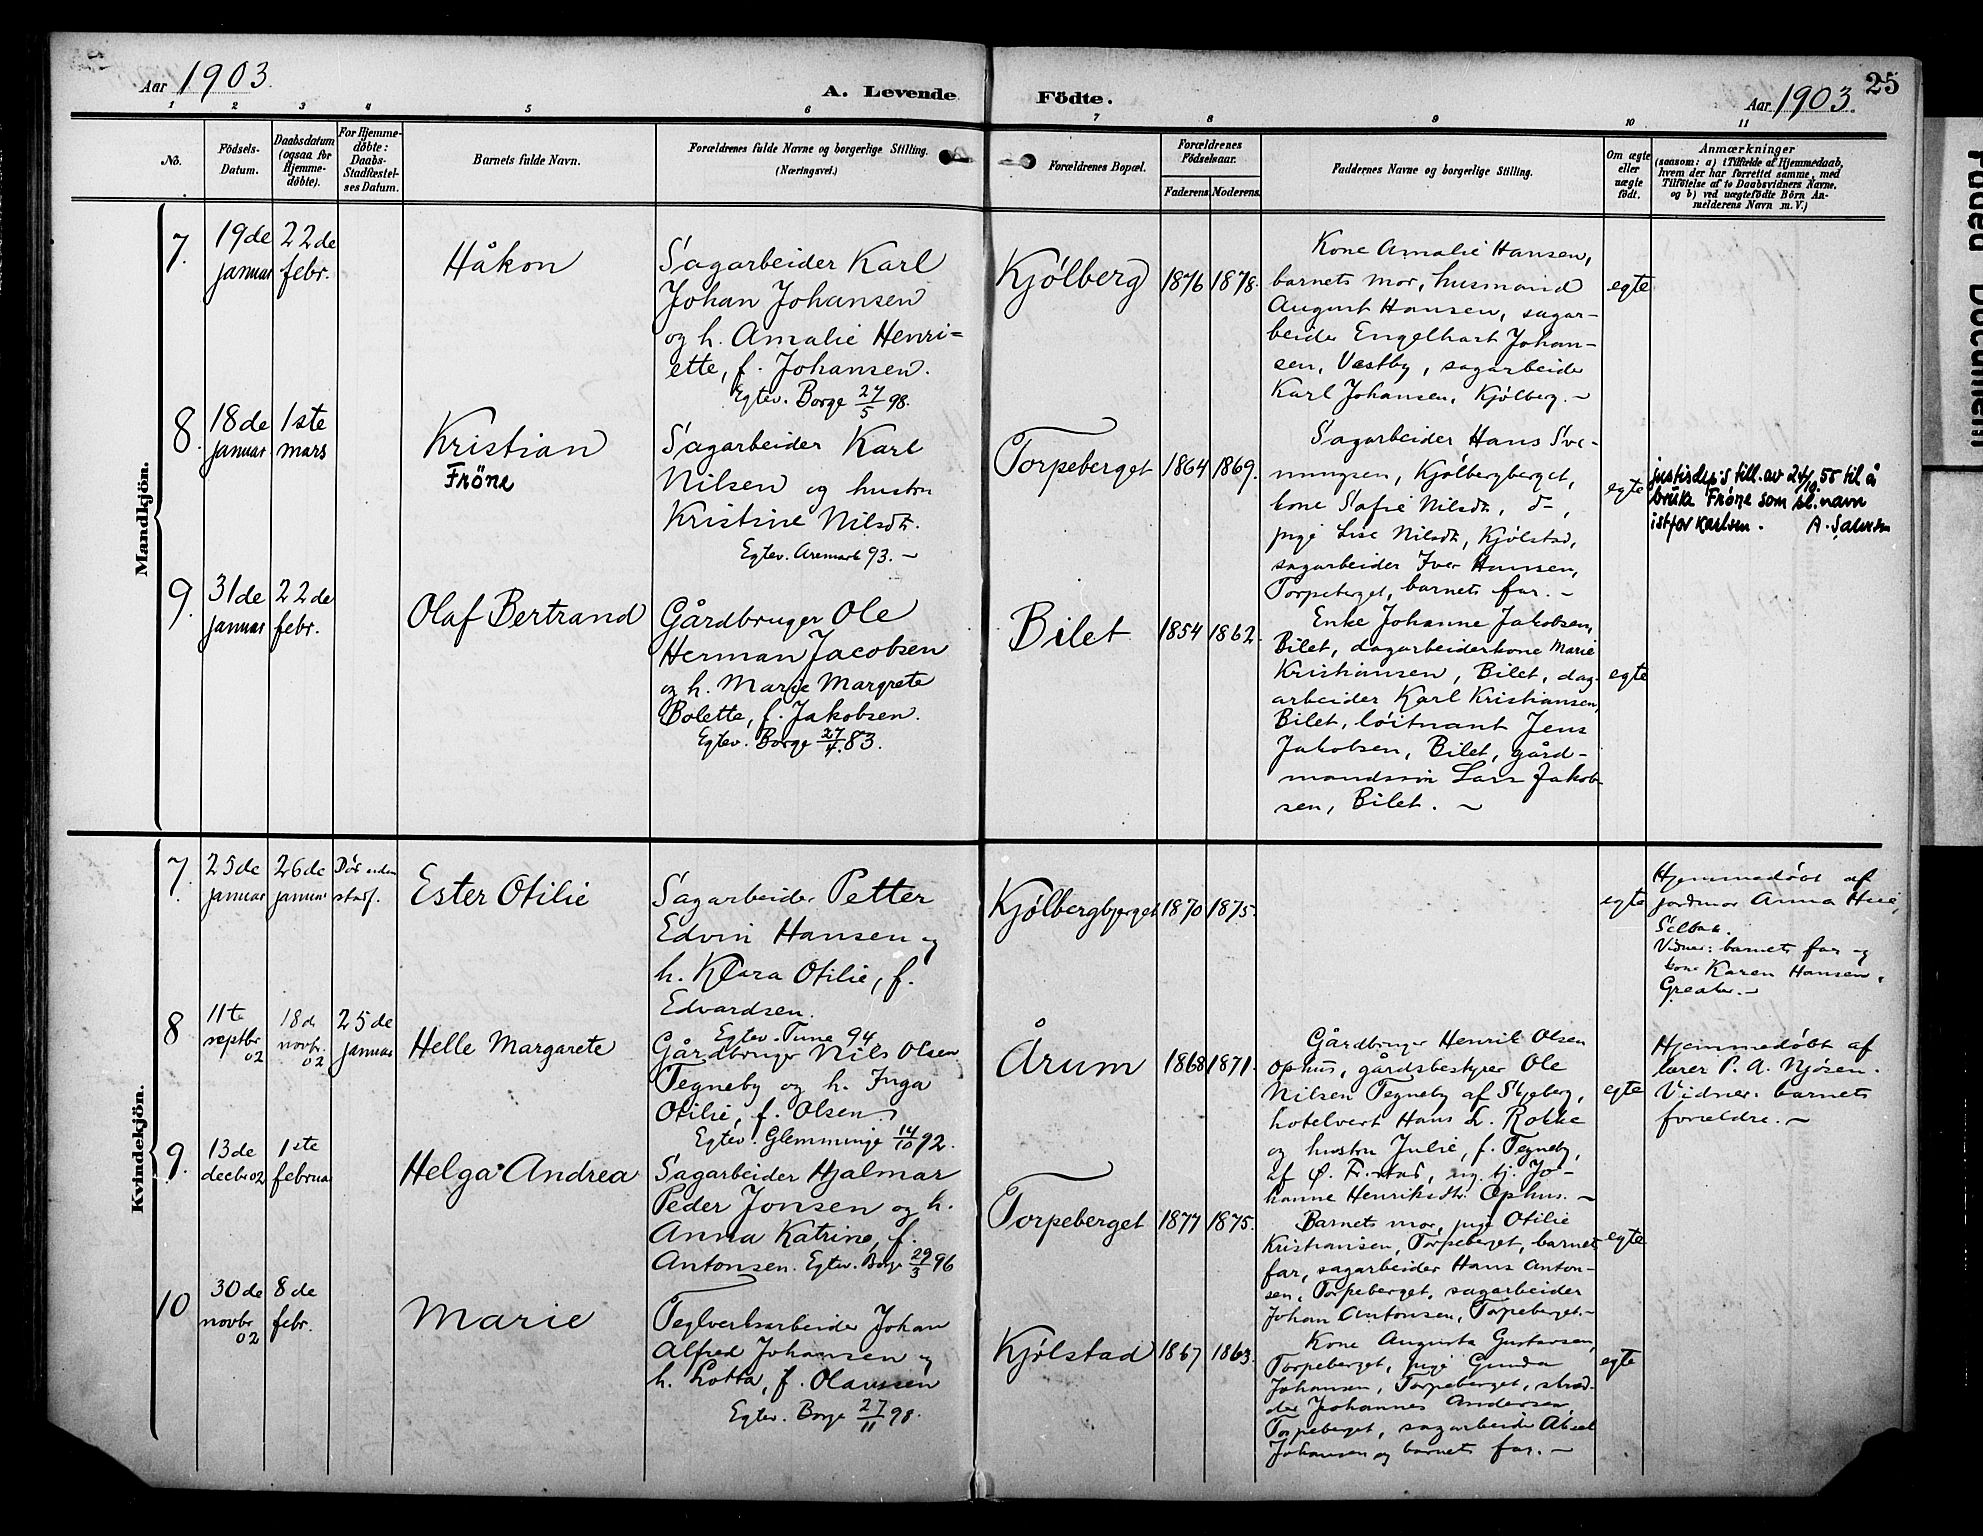 Aar 1903.
A. Levende
Födte.
Aar 1903.
25
1 2 3 4 5 6 7 8 9 10 11
No.
Födsels-
Datum.
Daabsdatum
(ogsaa for
Hjemme-
döbte).
For Hjemme-
døbte:
Daabs-
Stadfæstel-
ses Datum.
Barnets fulde Navn.
Forældrenes fulde Navne og borgerlige Stilling.
(Næringsvei.)
Forældrenes Bopæl.
Forældrenes
Fødselsaar.
Faderens
Moderens
Faddernes Navne og borgerlige Stilling.
Om ægte
eller
uægte
født.
Anmærkninger
(saasom: a) i Tilfælde af Hjemmedaab,
hvem der har forrettet samme, med
Tilföielse af to Daabsvidners Navne,
og b) ved uægtefödte Börn An-
melderens Navn m. V.)
Mandkjön.
7.
19de
januar
22de
febr.
Håkon
Sagarbeider Karl
Johan Johansen
og h. Amalie Henri=
ette, f. Johansen.
Egtev. Borge 27/5 98.
Kjølberg
1876
1878.
Kone Amalie Hansen,
barnets mor, husmand
August Hansen, sagar-
beider Engelhart Johan-
sen, Vestby, sagarbeider
Karl Johansen, Kjølberg. –
egte
8.
18de
januar
1ste
mars
Kristian
Fröne
Sagarbeider Karl
Nilsen og hustru
Kristine Nilsdt.
Egtev. Aremark 93. –
Torpeberget
1864
1869.
Sagarbeider Hans Sve-
ningsen, Kjølbergberget,
kone Sofie Nilsdt, d–,
pige Lise Nilsdt, Kjølstad,
sagarbeider Iver Hansen,
Torpeberget, barnets far. –
egte
justisdep:s till. av 24/10.55 til å
bruke Frøne som sl.navn
istfor Karlsen.
9.
31de
januar
22de
febr.
Olaf Bertrand
Gårdbruger Ole
Herman Jacobsen
og h. Marie Margrete
Bolette, f. Jakobsen.
Egtev. Borge 27/4 83.
Bilet
1854
1862.
Enke Johanne Jakobsen,
Bilet, dagarbeiderkone Marie
Kristiansen, Bilet, dag-
arbeider Karl Kristiansen,
Bilet, løitnant Jens
Jakobsen, Bilet, gård-
mandssøn Lars Jakob-
sen, Bilet. –
egte
Kvindekjön.
7.
25de
januar
26de
januar
Død uden
stadf.
Ester Otilie
Sagarbeider Petter
Edvin Hansen og
h. Klara Otilie, f.
Edvardsen.
Egtev. Tune 94.
Kjølbergbjerget
1870
1875.
egte
Hjemmedøbt af
jordmor Anna
Vidner: barnets far og
kone Karen Hansen,
8
11te
septbr
02
18de
novbr.
02
25de
januar
Helle Margarete
Gårdbruger Nils Olsen
Tegneby og h. Inga
Otilie, f. Olsen
Egtev. Glemminge 14/10 92.
Årum
1868
1871.
Gårdbruger Henrik Olsen
Ophus, gårdsbestyrer Ole
Nilsen Tegneby af Skjeberg,
hotelvert Hans L. Rokke
og hustru Julie, f. Tegneby,
af Ø. F.stad, ug. tj. Jo-
hanne Henriksdtr Ophus. –
egte
Hjemmedøbt af
lærer P. A. Njøsen.
Vidner: barnets
forældre. –
9.
13de
decbr 02
1ste
februar
Helga Andrea
Sagarbeider Hjalmar
Peder Jonsen og h.
Anna Katrine, f.
Antonsen. Egtev. Borge 29/3 96
Torpeberget
1877
1875.
Barnets mor, pige Otilie
Kristiansen, Torpeberget, barnets
far, sagarbeider Hans Anton-
sen, Torpeberget, sagarbeider
Johan Antonsen, Torpeberget. –
egte
10
30de
novbr
02
8de
febr.
Marie
Teglverksarbeider Johan
Alfred Johansen og
h. Lotta, f. Olaussen
Egtev. Borge 27/11 98.
Kjølstad
1867
1863.
Kone Augusta Gustavsen,
Torpeberget, pige Gunda
Johansen, Torpeberget, skræd-
der Johannes Andersen,
Torpeberget, sagarbeider Aksel
Johansen og barnets far. –
egte